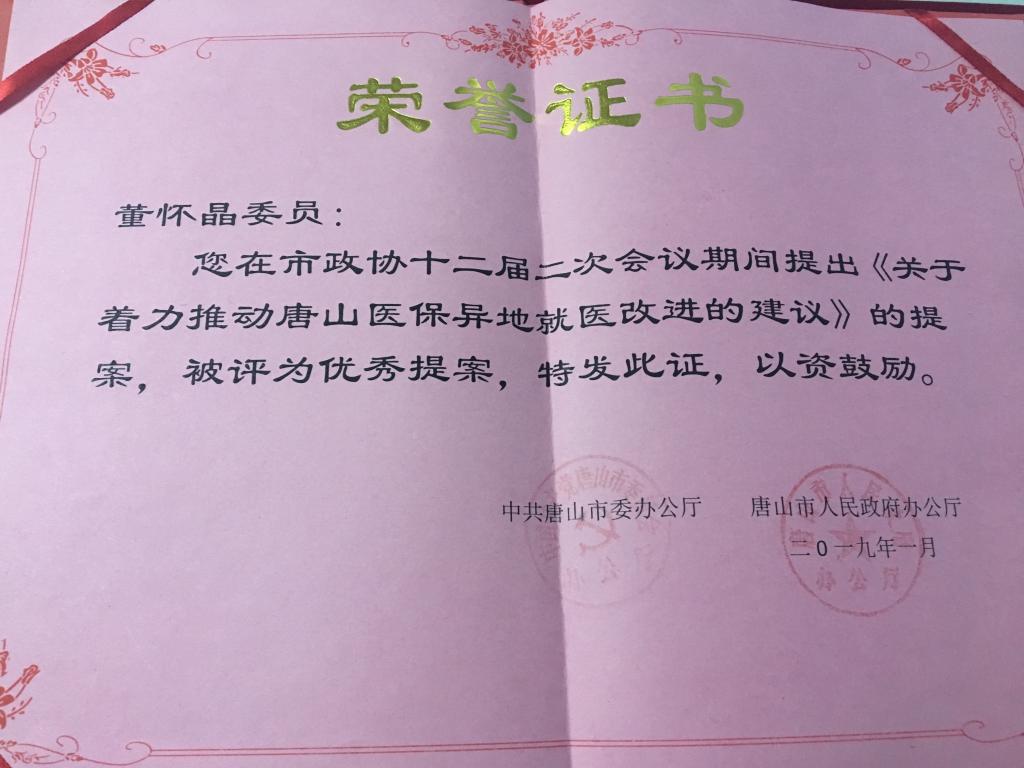 荣誉证书
董怀晶委员：
您在市政协十二届二次会议期间提出《关于
着力推动唐山医保异地就医改进的建议》的提
案，被评为优秀提案，特发此证，以资鼓励。
中共唐山市委办公厅 唐山市人民政府办公厅
二0一九年一月